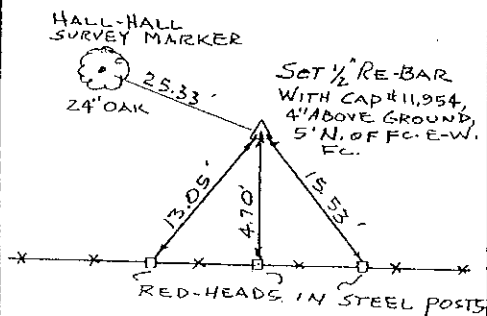 HALL-HALL
SURVEY MARKER
25.33'
24" OAK
SET 1/2" RE-BAR
WITH CAP #11,954,
4" ABOVE GROUND,
5' N. OF FC. E-W.
FC.
13.05'
4.70'
15.53'
RED-HEADS IN STEEL POSTS